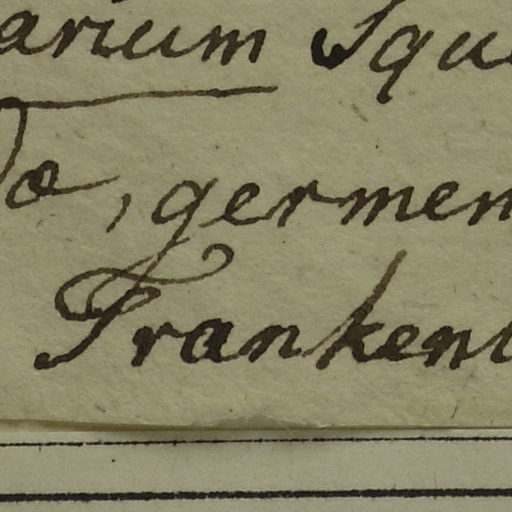 arium Squ
dæ, germen
Frankent